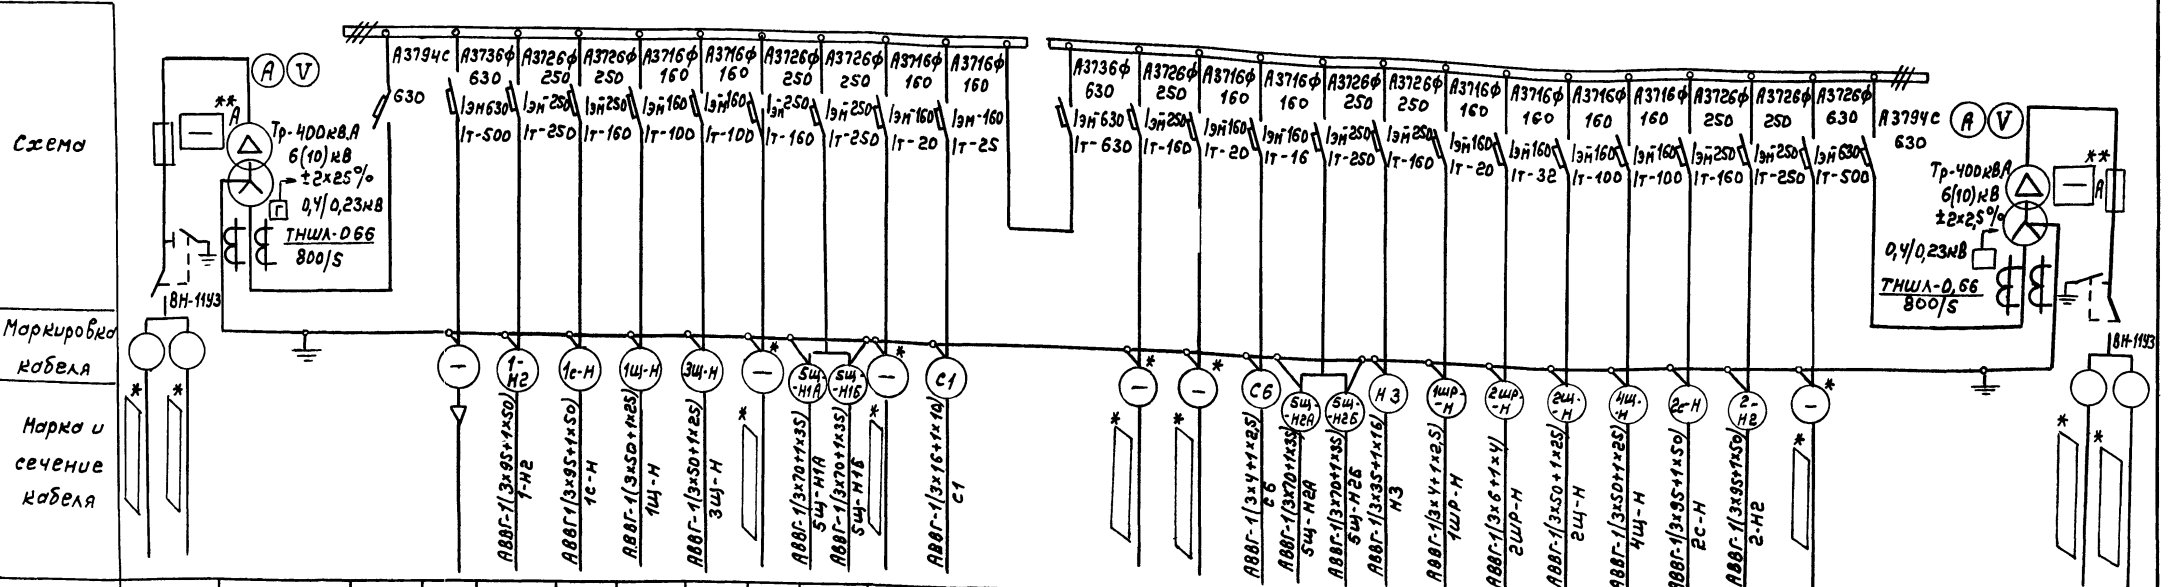 Схема
Маркировка
кабеля
Марка и
сечение
кабеля
A
V
**
A
Тр-400кВ.А
6(10) кВ
±2×25%
0,4/0,23кВ
Г
ТНШЛ-066
800/5
ВН-11У3
А3794С
630
А3736Ф
630
Iэм630
Iт-500
А3726Ф
250
Iэм-250
Iт-250
А3726Ф
250
Iэм-250
Iт-160
А3716Ф
160
Iэм-160
Iт-100
А3716Ф
160
Iэм-160
Iт-100
А3726Ф
250
Iэм-250
Iт-160
А3726Ф
250
Iэм-250
Iт-250
А3716Ф
160
Iэм-160
Iт-20
А3716Ф
160
Iэм-160
Iт-25
А3736Ф
630
Iэм-630
Iт-630
А3726Ф
250
Iэм-250
Iт-160
А3716Ф
160
Iэм-160
Iт-20
А3716Ф
160
Iэм-160
Iт-16
А3726Ф
250
Iэм-250
Iт-250
А3726Ф
250
Iэм-250
Iт-160
А3716Ф
160
Iэм160
Iт-20
А3716Ф
160
Iэм-160
Iт-32
А3716Ф
160
Iэм-160
Iт-100
А3716Ф
160
Iэм-160
Iт-100
А3726Ф
250
Iэм-250
Iт-160
А3726Ф
250
Iэм-250
Iт-250
А3726Ф
630
Iэм-630
Iт-500
А3794С
630
A
V
**
A
Тр-400кВА
6(10)кВ
±2×2,5%
0,4/0,23кВ
ТНШЛ-0,66
800/5
ВН-11У3
–
1-
Н2
1с-Н
1Щ-Н
3Щ-Н
–
*
5Щ-
-Н1А
5Щ-
-Н1Б
–
*
С1
–
*
–
*
С6
5Щ-
-Н2А
5Щ-
-Н2Б
Н3
1ШР-
-Н
2ШР-
-Н
2Щ-
-Н
4Щ-
-Н
2с-Н
2-
Н2
–
*
*
*
АВВГ-1(3×95+1×50)
1-Н2
АВВГ1(3×95+1×50)
1С-Н
АВВГ-1(3×50+1×25)
1Щ-Н
АВВГ-1(3×50+1×25)
3Щ-Н
*
АВВГ-1(3×70+1×35)
5Щ-Н1А
АВВГ-1(3×70+1×35)
5Щ-Н1Б
*
АВВГ-1(3×16+1×10)
С1
*
*
АВВГ-1(3×4+1×2,5)
С6
АВВГ-1(3×70+1×35)
5Щ-Н2А
АВВГ-1(3×70+1×35)
5Щ-Н2Б
АВВГ-1(3×35+1×16)
Н3
АВВГ-1(3×4+1×2,5)
1ШР-Н
АВВГ-1(3×6+1×4)
2ШР-Н
АВВГ-1(3×50+1×25)
2Щ-Н
АВВГ-1(3×50+1×25)
4Щ-Н
АВВГ-1(3×95+1×50)
2С-Н
АВВГ-1(3×95+1×50)
2-Н2
*
*
*